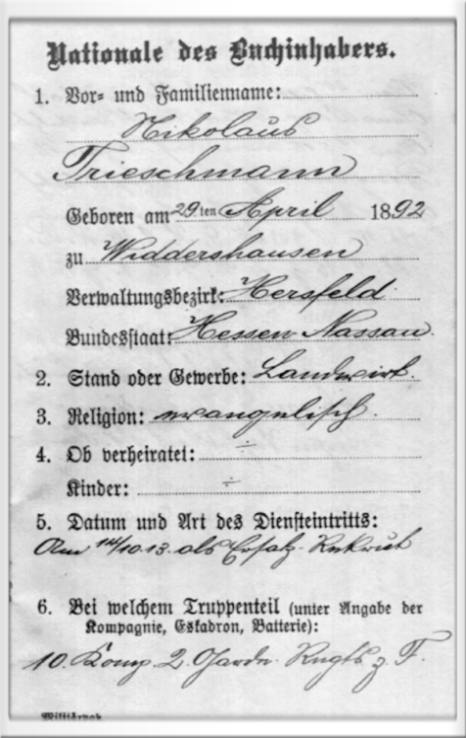 Nationale des Buchinhabers.
1. Vor- und Familienname:
Nikolaus
Trieschmann
Geboren am 29ten April 1892
zu Widdershausen
Verwaltungsbezirk: Hersfeld.
Bundesstaat: Hessen Nassau.
2. Stand oder Gewerbe: Landwirt.
3. Religion: evangelisch.
4. Ob verheiratet: ÷
Kinder: ÷
5. Datum und Art des Diensteintritts:
Am 14/10.13. als Ersatz-Rekrut
6. Bei welchem Truppenteil (unter Angabe der
Kompagnie, Eskadron, Batterie):
10. Komp. 2. Garde Regts z. F.